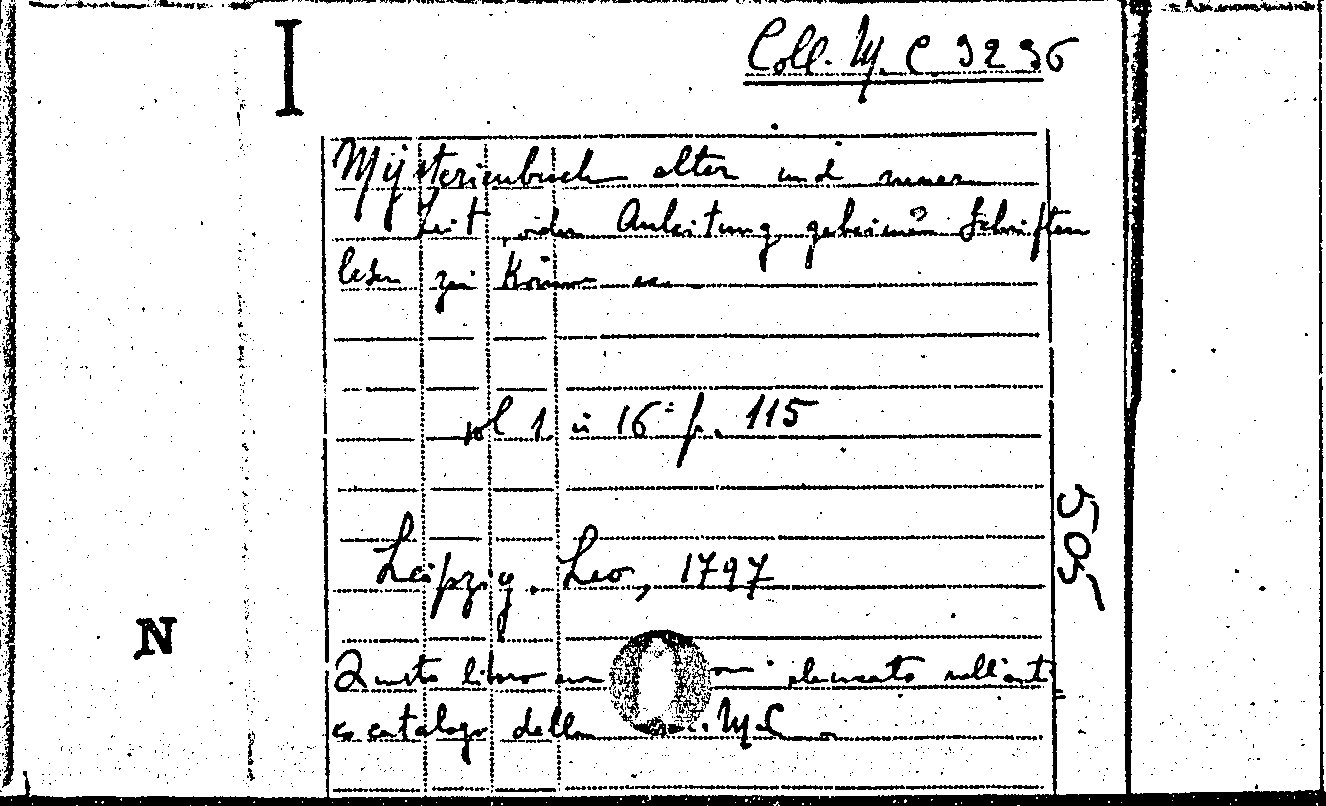 I
Coll. M. C 3236
Mysterienbuch alter und neuer
Zeit, oder Anleitung geheimen Schriften
lesen zu können
vol 1 in 16° p. 115
505
Leipzig. Leo, 1797
N
Questo libro non elencato nell'anti=
co catalogo della M C